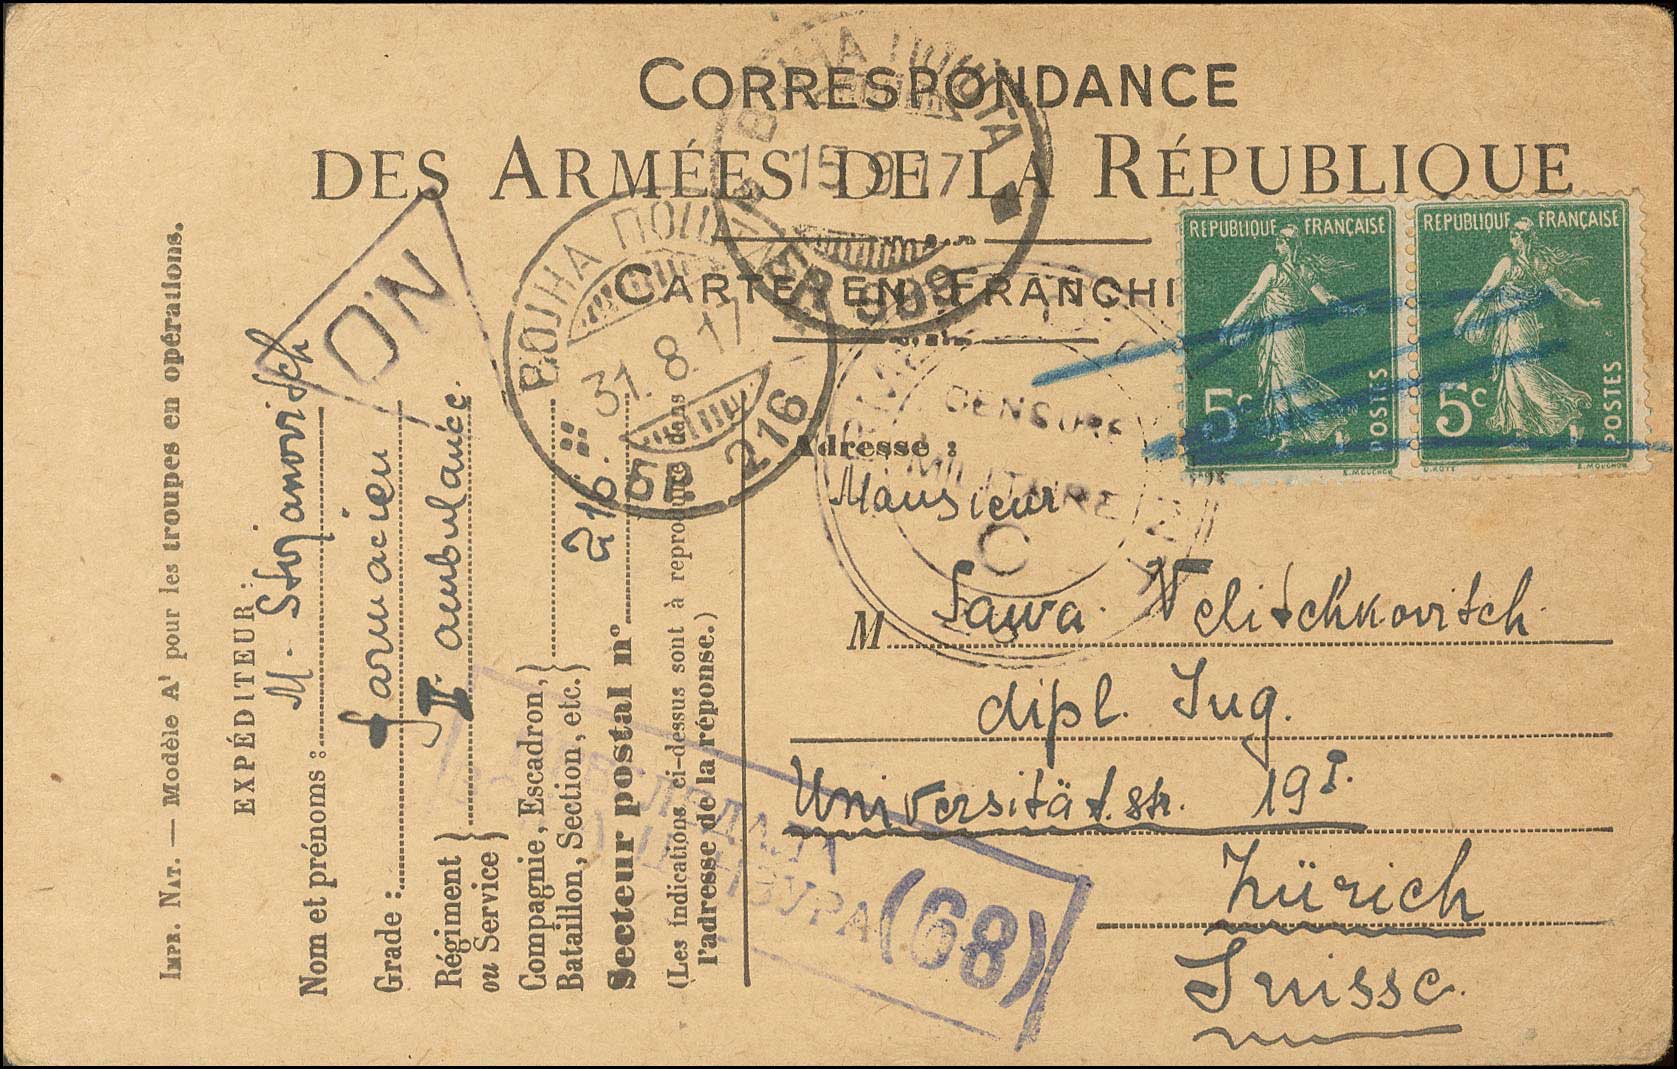 CORRESPONDANCE
DES ARMÉES DE LA RÉPUBLIQUE
CARTE EN FRANCHI
ВОЈНА ПОШТА
15 9 17
БР 999
ВОЈНА ПОШТА
31. 8. 17
БР. 216
N.O
REPUBLIQUE FRANÇAISE
5c POSTES
REPUBLIQUE FRANÇAISE
5c POSTES
CENSURE
MILITAIRE
C
Adresse :
Mansieur
M Sawa Velitschkovitsch
dipl. Ing.
Universität.str. 19 I.
Zürich
Suisse.
ПРЕГЛЕДАЛА
ЦЕНЗУРА (68)
IMPR. NAT. — Modèle A1 pour les troupes en opérations.
EXPÉDITEUR :
Nom et prénoms : M. Stojanovitch
Grade : farmacien
Régiment ou Service } I ambulance
Compagnie, Escadron, Bataillon, Section, etc. }
Secteur postal n° 216.
(Les indications ci-dessus sont à reproduire dans
l'adresse de la réponse.)